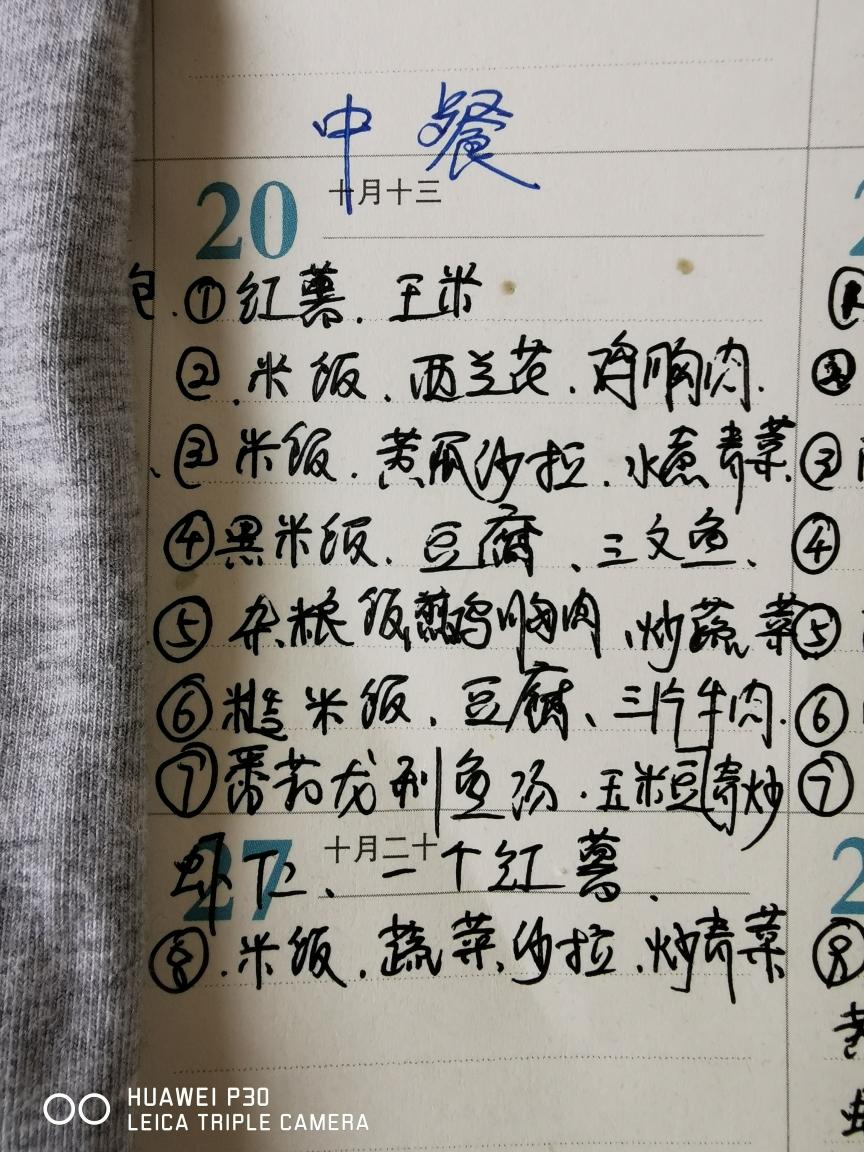 中餐
20 十月十三
包.①红薯.玉米
②.米饭.西兰花.鸡胸肉.
、③米饭.黄瓜沙拉.水煮青菜 ③
④黑米饭.豆腐、三文鱼、 ④
⑤杂粮饭,蒸鸡胸肉、炒蔬菜 ⑤
⑥糙米饭、豆腐、三片牛肉. ⑥
⑦番茄龙利鱼汤.玉米豆青炒 ⑦
27 十月二十 2
虾仁、一个红薯.
⑧.米饭.蔬菜沙拉.炒青菜 ⑧
HUAWEI P30
LEICA TRIPLE CAMERA